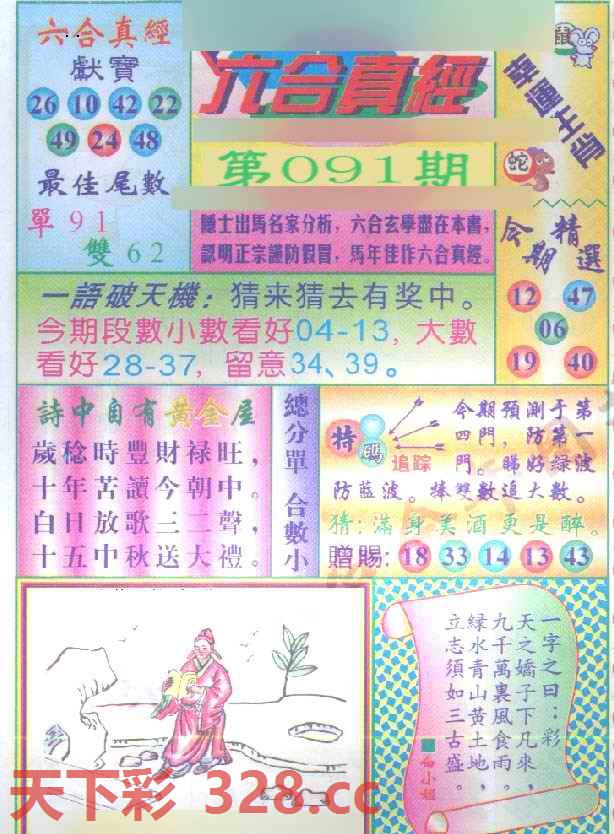 六合真經
獻寶
26 10 42 22
49 24 48
最佳尾數
單 9 1
雙 6 2
六合真經
第091期
隱士出馬名家分析，六合玄學盡在本書，
認明正宗謹防假冒，馬年佳作六合真經。
鼠
幸運生肖
蛇
今期精選
12 47
06
19 40
一語破天機：猜来猜去有奖中。
今期段數小數看好04-13，大數
看好28-37，留意34、39。
詩中自有黄金屋
歲稔時豐財禄旺，
十年苦讀今朝中。
白日放歌三二聲，
十五中秋送大禮。
總分單 合數小
特碼
追踪
今期預測于第
四門，防第一
門。睇好绿波
防藍波。捧雙數追大數。
猜：滿身美酒更是醉。
贈賜：18 33 14 13 43
一字之曰：彩
天之嬌子下凡來，
九千萬裏風食雨，
緑水青山黄土地，
立志須如三古盛。
天下彩 328.cc